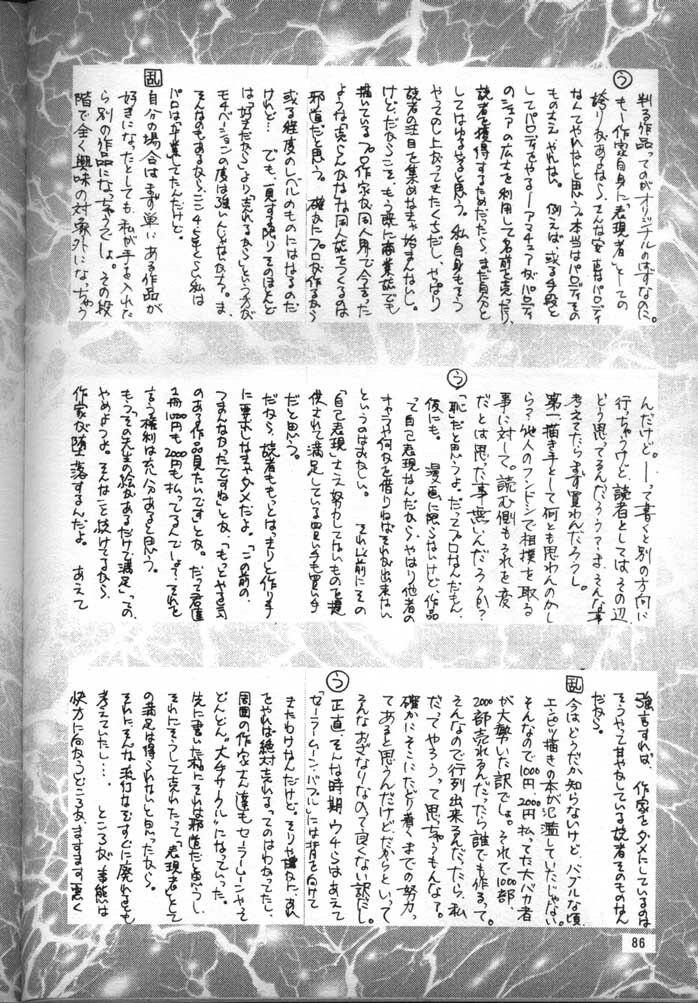 う
判る作品ってのがオリジナルのはずなのに。
もし作家自身に「表現者」としての
誇りがあるなら、そんな安直なパロディ
なんてやれないと思う。本当はパロディその
ものさえやれない。例えば、或る手段と
してパロディをやる—アマチュアがパロディ
のシェアの広さを利用して名前を売ったり、
読者を獲得するためだったら、まだ自分と
してはゆるせると思う。私自身もそう
やってのし上がってきたくちだし、やっぱり
読者の注目を集めなきゃ始まんないし。
けど、だからこそ、もう既に商業誌でも
描いているプロ作家が同人界で今さらった
ような 同人誌をつくるのは
邪道だと思う。確かにプロが作るから
或る程度のレベルのものにはなるのだ
けれど…でも、一見する限りそのほとんど
は「好きだから」より「売れるから」という方が
モチベーションの度は強いんじゃないかな?。ま、
そんなのもあるから、ここ3~4年くらい私は
パロは「卒業」してたんだけど。
乱
自分の場合はまず単にある作品が
好きになったとしても、私が手を入れた
ら別の作品になっちゃうでしょ。その段
階で全く興味の対象外になっちゃう
んだけど。—って書くと別の方向に
行っちゃうけど、読者としてはその辺
どう思ってるんだろうか?—ま、そんな事
考えてたらまず買わんだろうし。
第一描き手として何とも思わんのかし
ら?他人のフンドシで相撲を取る
事に対して。読む側もそれを変
だとは思った事無いんだろうか?
う
「恥」だと思うよ。だってプロなんだもん、
仮にも。漫画に限らないけど、作品
って自己表現なんだから、やはり他者の
キャラや何かを借りねばそれが出来ない
というのはおかしい。それ以前にその
「自己表現」さえ努力してないものを提
供されて満足している買い手も買い手
だと思う。
だから、読者ももっとはっきりと作り手
に要求しなきゃダメだよ。「この前の、
つまんなかったですね」とか、「もっとやる気
のある作品見たいです」とか。だって君達
1冊1000円も2000円も払ってるんでしょ?それを
言う権利は充分あると思う。
もう、「その先生の絵があるだけで満足」っての、
やめようよ。そんな を続けてるから、
作家が堕落するんだよ。あえて
強言すれば、作家をダメにしているのは
そうやって甘やかしている読者そのものなん
だから。
乱
今はどうだか知らないけど、バブルな頃、
エンピツ描きの本が氾濫していたじゃない。
そんなので1000円、2000円払ってた大バカ者
が大勢いた訳でしょ。それで1000部、
2000部売れるんだったら誰でも作るって。
そんなので行列出来るんだったら、私
だってやろうって思っちゃうもんなァ。
確かにそこにたどり着くまでの努力っ
てあると思うんだけど、だからといって
そんなおざなりなのって良くない訳だし。
う
正直、そんな時期ウチらはあえて
「セーラームーン・バブル」には背を向けて
きたわけなんだけど、そりゃ誰だって、あれ
をやれば絶対売れるってのはわかってたし、
周囲の作家さん達もセーラームーンやって
どんどん"大手サークル"になっていった。
先に書いた様にそれは邪道だと思うし、
それにそうして売れたって「表現者」として
の満足は得られないと思ったから。
それにそんな流行なんてすぐに廃れるとも
考えていたし…。ところが、事態は
快方に向かうどころか、ますます悪く
86